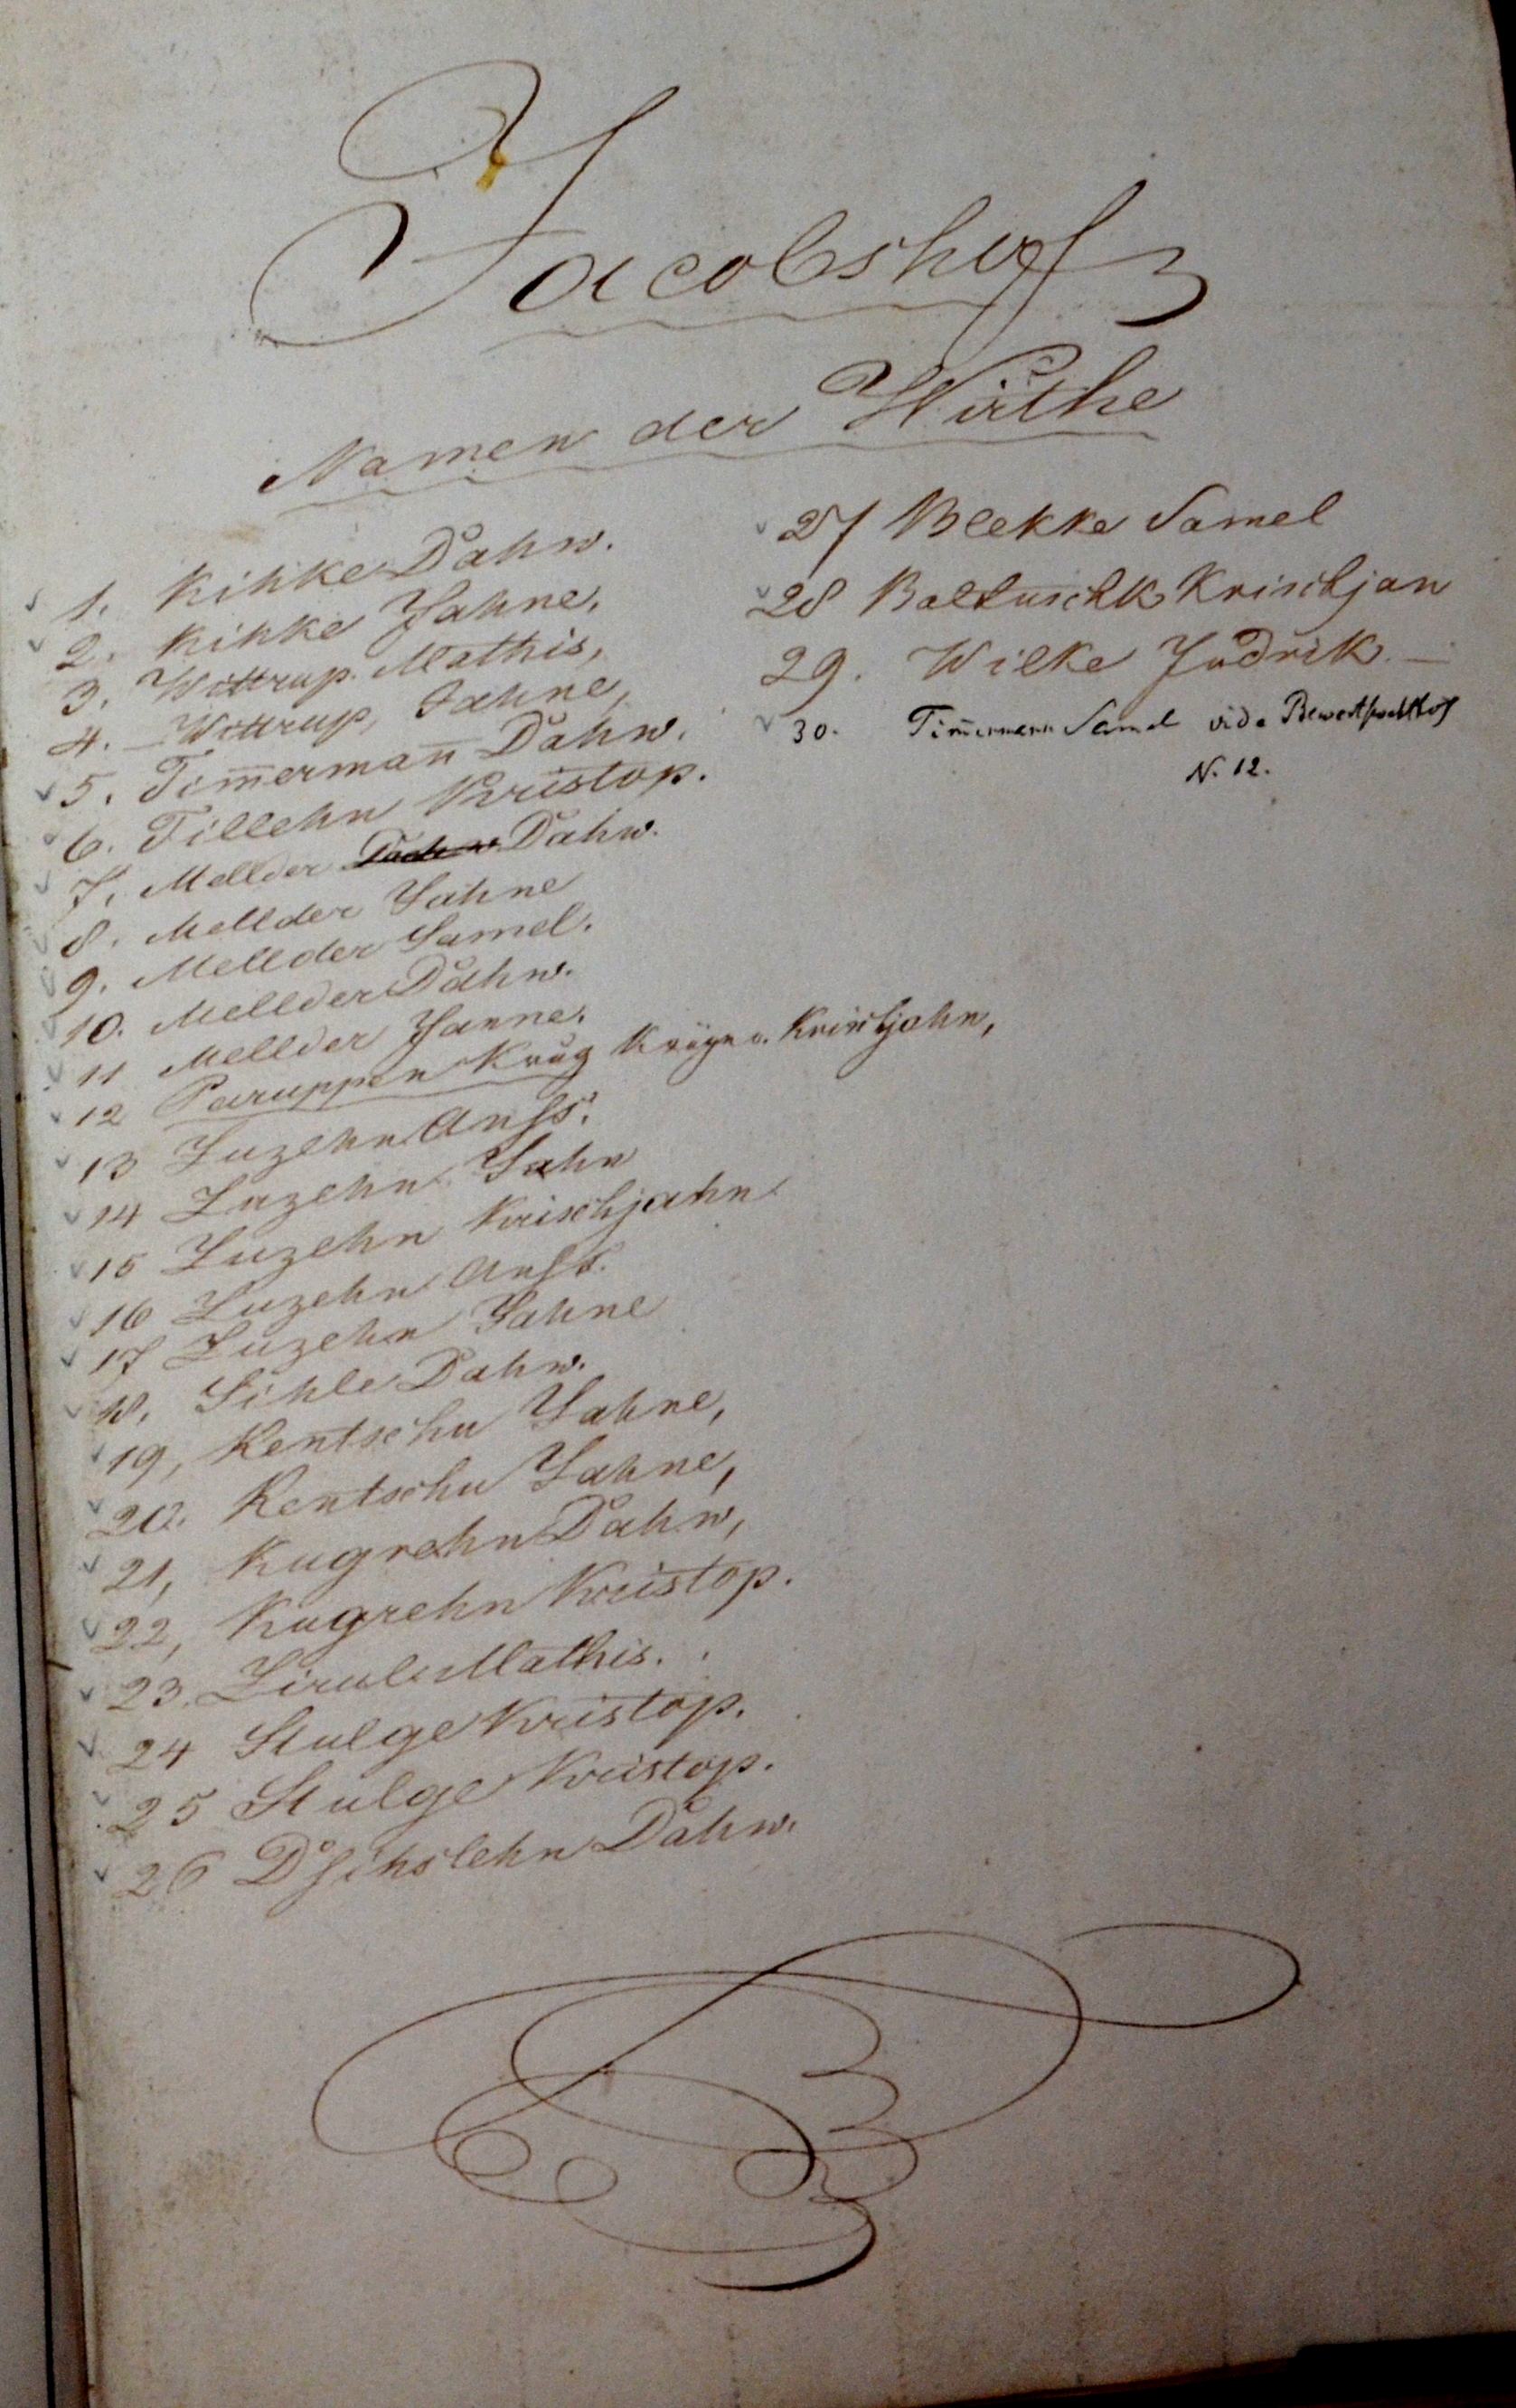 Jacobshof
Namen der Wirthe
1. Kihke Dahw.
2. Kihke Jahne,
3. Wittrup. Mathis,
4. Wittrup, Jahne,
5. Tim̅erman̅ Dahw.
6. Tillehn Kristop.
7. Mellder Dahw. Dahw.
8. Mellder Jahne
9. Mellder Samel.
10. Mellder Dahw.
11 Mellder Janne.
12 Paruppen Krug Krüger Krischjahn,
13 Zuzehn Anss.
14 Zuzehn Jahn
15 Zuzehn Krischjahn
16 Zuzehn Anss.
17 Zuzehn Jahne
18, Sihle Dahw.
19, Kentschu Jahne,
20. Kentschu Jahne,
21, Kugrehn Dahw,
22, Kugrehn Kristop.
23. Zirul Mathis.
24 Stulge Kristop.
25 Stulge Kristop.
26 Dsihslehn Dahw.
27 Blekke Samel
28 Baltuschk Krischjan
29. Wilke Indrik.
30. Tim̅ermann Samel vide
N. 12.